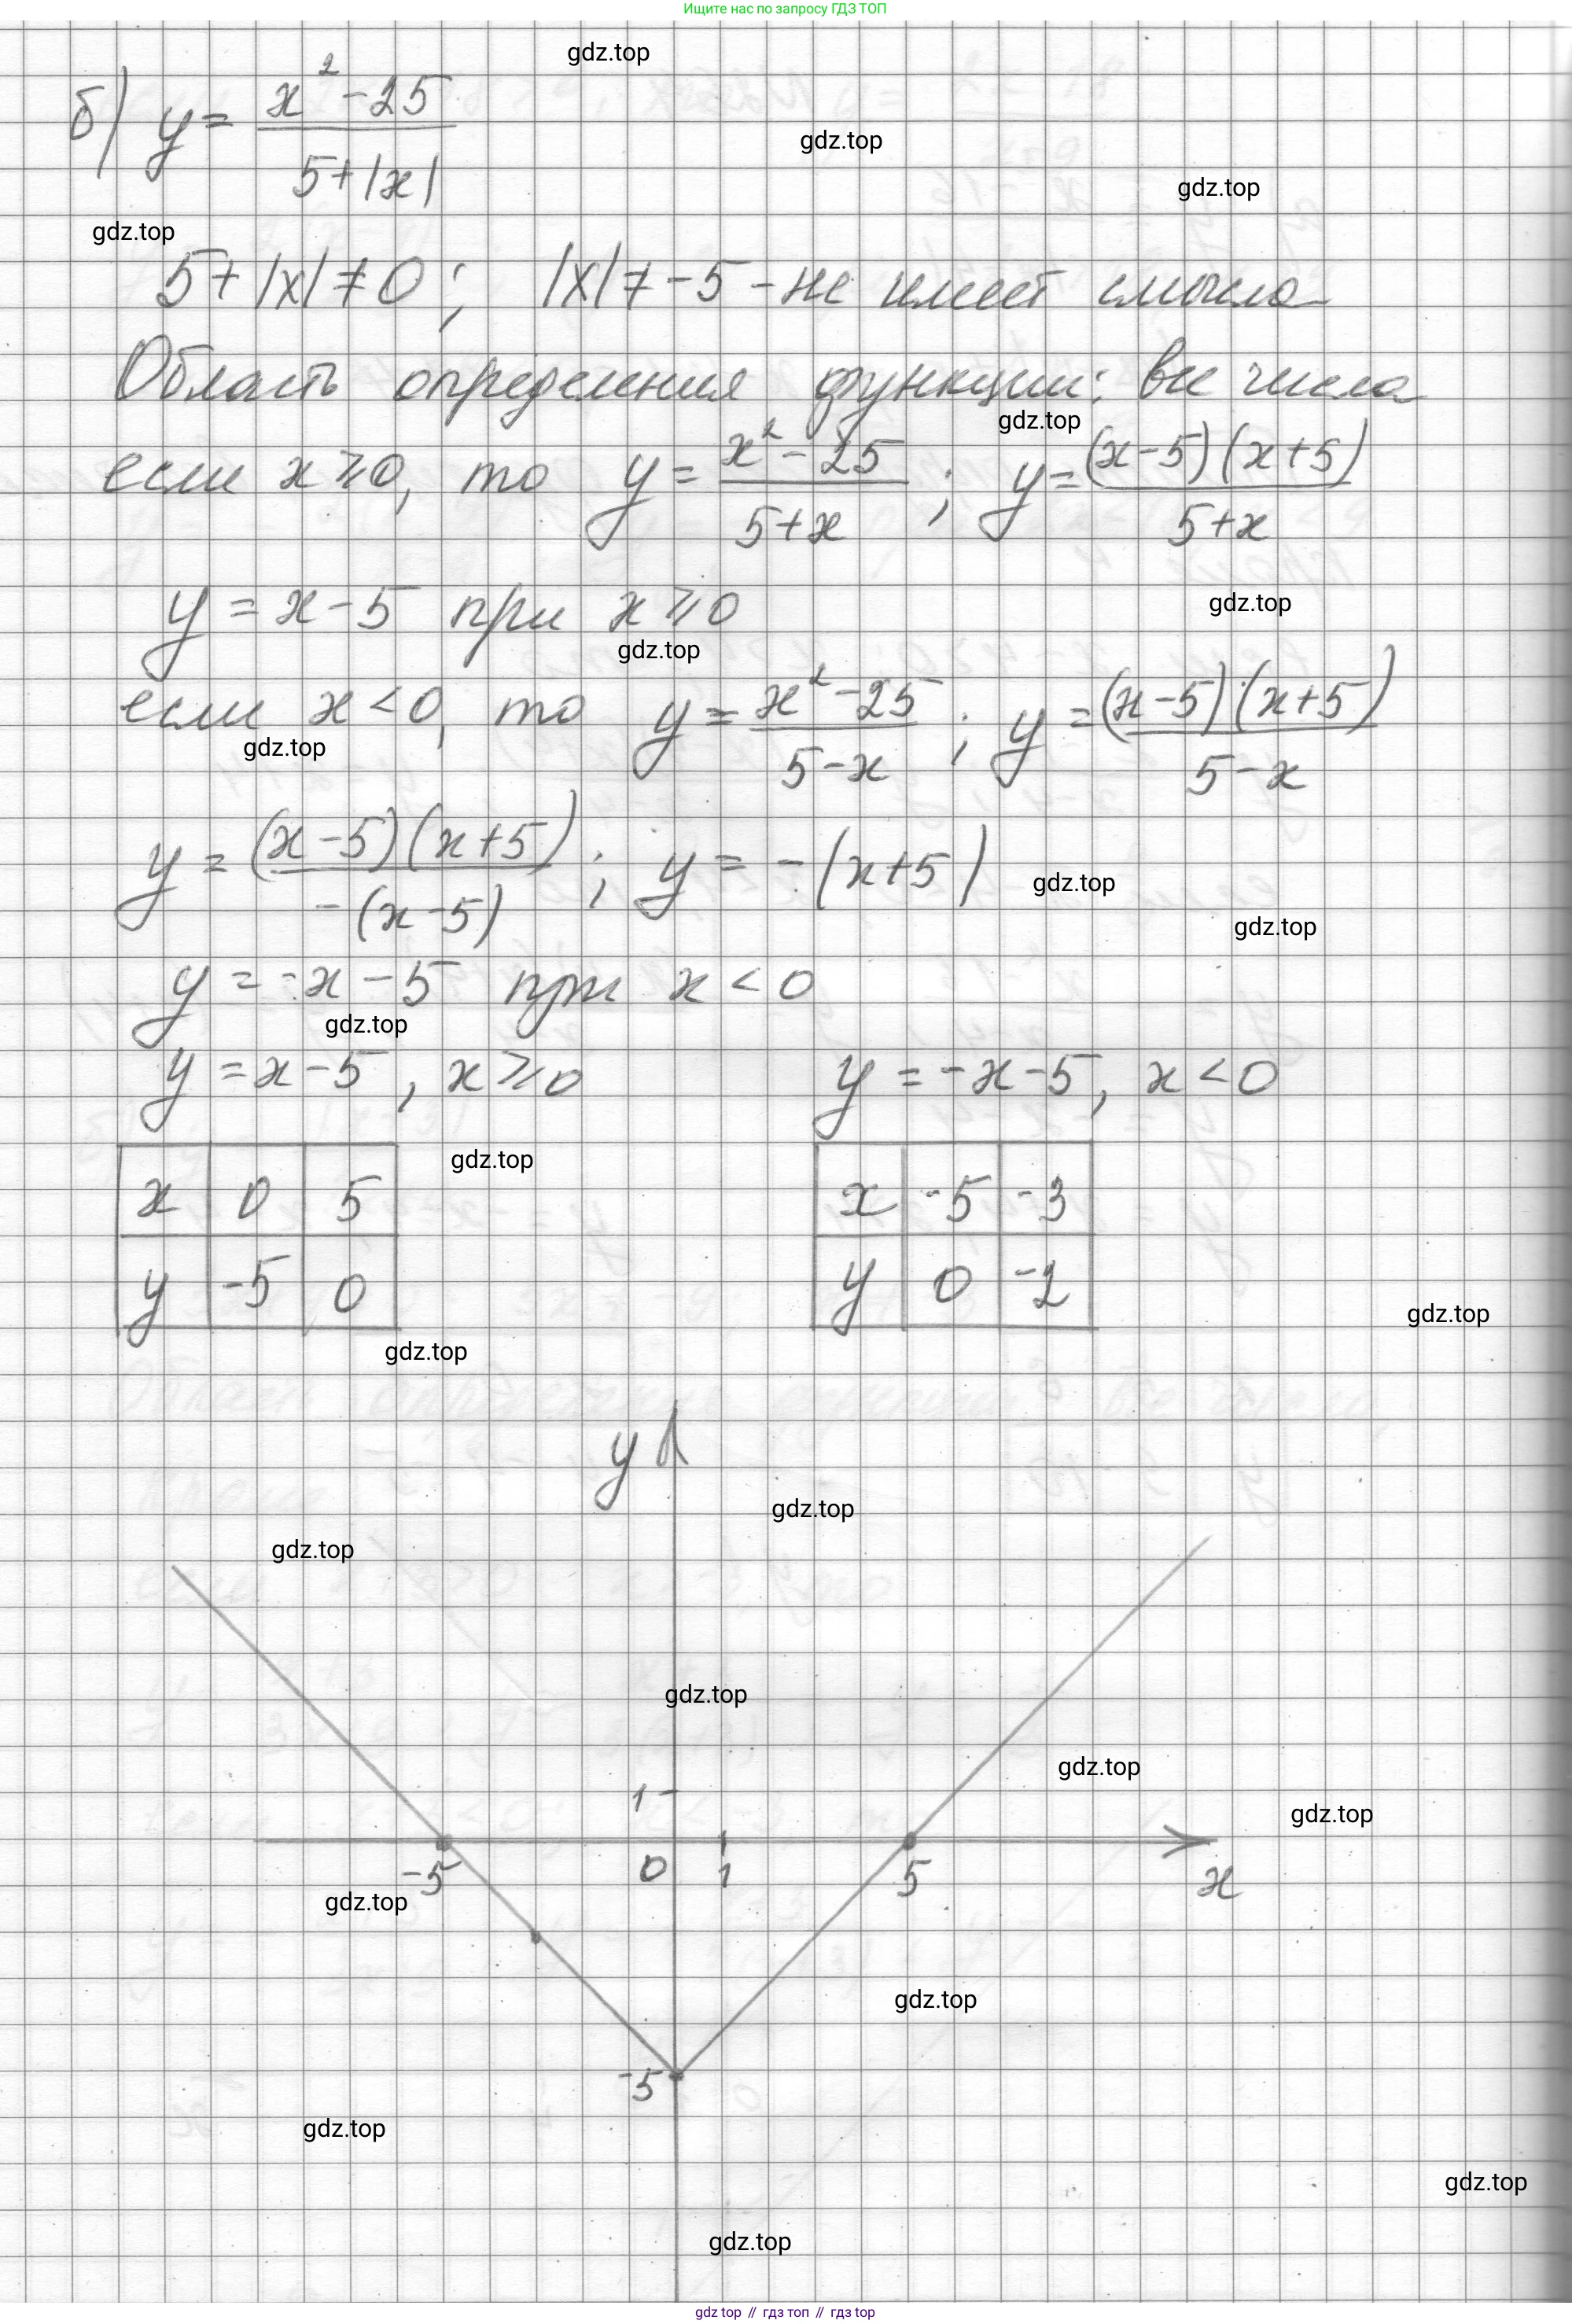 Ищите нас по запросу ГДЗ ТОП
gdz.top
б) y = (x² - 25)/(5 + |x|)
gdz.top
gdz.top
gdz.top
5 + |x| ≠ 0; |x| ≠ -5 - не имеет смысла
Область определения функции: все числа
gdz.top
если x ⩾ 0, то y = (x² - 25)/(5 + x); y = (x-5)(x+5)/(5 + x)
y = x - 5 при x ⩾ 0
gdz.top
gdz.top
если x < 0, то y = (x² - 25)/(5 - x); y = (x-5)(x+5)/(5 - x)
gdz.top
y = (x-5)(x+5)/(-(x-5)); y = -(x+5)
gdz.top
gdz.top
y = -x - 5 при x < 0
gdz.top
y = x - 5, x ⩾ 0 y = -x - 5, x < 0
gdz.top
x 0 5 x -5 -3
y -5 0 y 0 -2
gdz.top
gdz.top
y
gdz.top
gdz.top
gdz.top
gdz.top
1
gdz.top
-5 0 1 5 x
gdz.top
gdz.top
-5
gdz.top
gdz.top
gdz.top
gdz top // гдз топ // гдз top